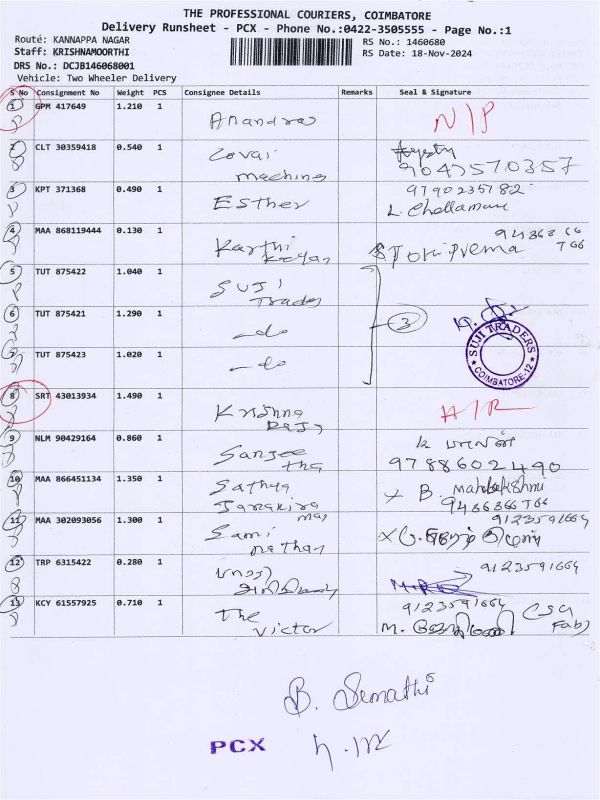 THE PROFESSIONAL COURIERS, COIMBATORE
Delivery Runsheet - PCX - Phone No.:0422-3505555 - Page No.:1
Route: KANNAPPA NAGAR RS No.: 1460680
Staff: KRISHNAMOORTHI RS Date: 18-Nov-2024
DRS No.: DCJB146068001
Vehicle: Two Wheeler Delivery
S No Consignment No Weight PCS Consignee Details Remarks Seal & Signature
1 GPM 417649 1.210 1
Anandraj N/P
2 CLT 30359418 0.540 1
Covai
machines 9047570357
3 KPT 371368 0.490 1 9790235782
Esther
4 MAA 868119444 0.130 1
Karthi
5 TUT 875422 1.040 1
SUJI
Trades
6 TUT 875421 1.290 1
-do 3
SUJI TRADERS
COIMBATORE-12
7 TUT 875423 1.020 1
-do
8 SRT 43013934 1.490 1
Krishna
Raj
9 NLM 90429164 0.860 1
Sanjee
tha 9788602490
10 MAA 866451134 1.350 1
Sathya x B. Mahalakshmi
Janakira
man
11 MAA 302093056 1.300 1 9123591664
Sami
nathan
12 TRP 6315422 0.280 1 9123591664
13 KCY 61557925 0.710 1 9123591664
The
Victor
B. Sumathi
PCX